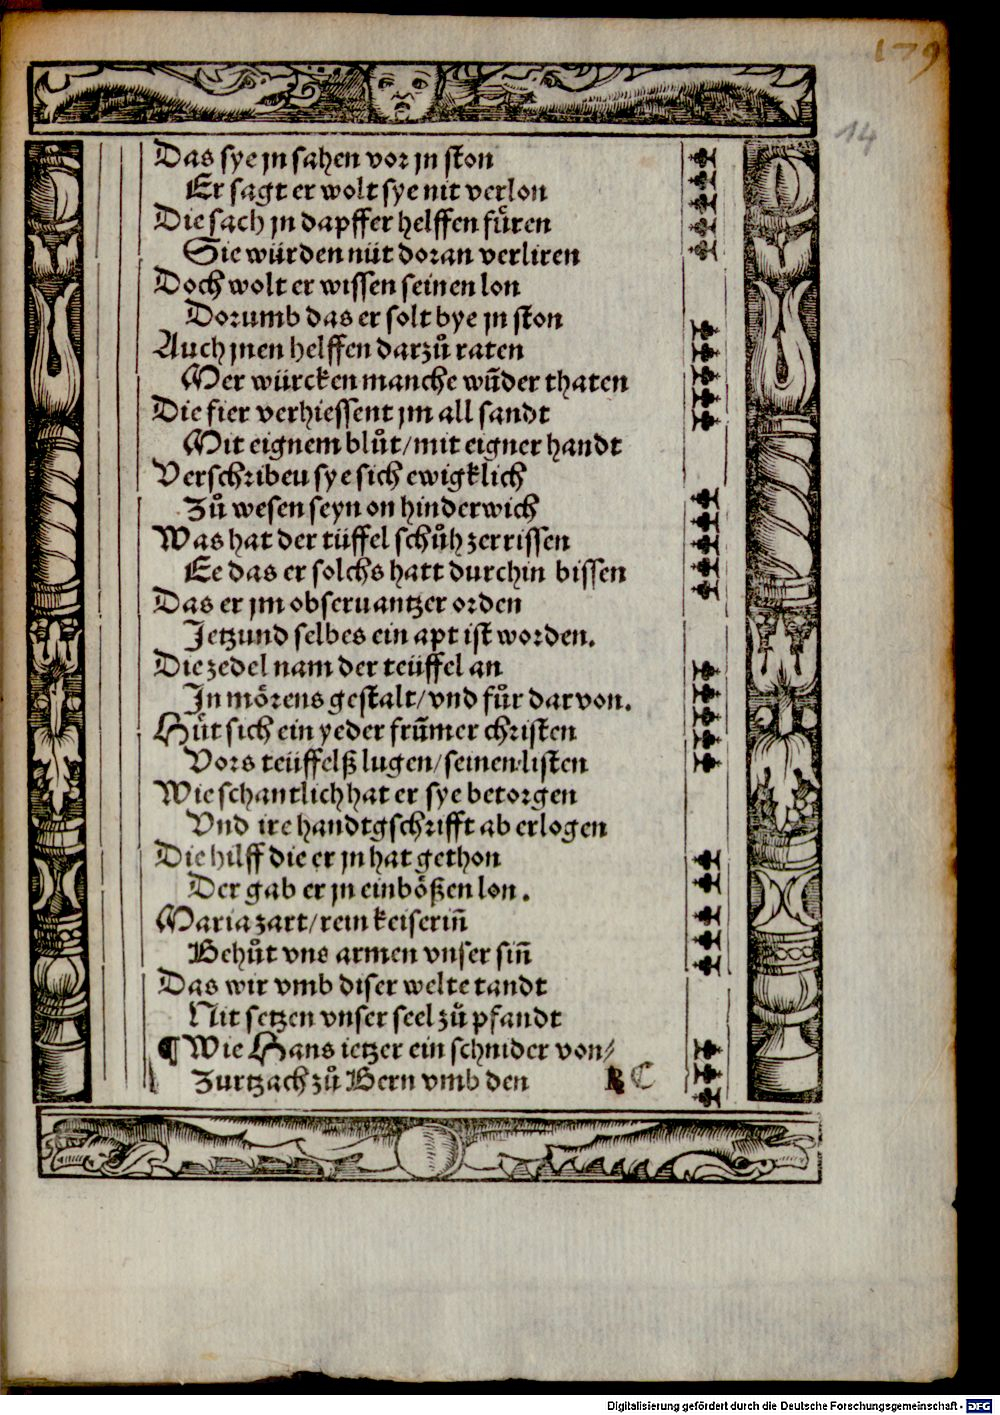 179
14
Das sye jn sahen vor jn ston
Er sagt er wolt sye nit verlon
Die sach jn dapffer helffen fuͤren
Sie würden nüt doran verliren
Doch wolt er wissen seinen lon
Dorumb das er solt bye jn ston
Auch jnen helffen darzuͦ raten
Mer würcken manche wūder thaten
Die fier verhiessent jm all sandt
Mit eignem bluͦt/mit eigner handt
Verschribeu sye sich ewigklich
Zuͦ wesen seyn on hinderwich
Was hat der tüffel schuͦh zerrissen
Ee das er solchs hatt durchin bissen
Das er jm obseruantzer orden
Jetzund selbes ein apt ist worden.
Die zedel nam der teüffel an
In moͤrens gestalt/vnd fuͦr dar von.
Huͤt sich ein yeder frūmer christen
Vors teüffelß lugen/seinen listen
Wie schantlich hat er sye betorgen
Vnd ire handtgschrifft ab erlogen
Die hilff die er jn hat gethon
Der gab er jn ein boͤßen lon.
Maria zart/rein keiserin̄
Behuͤt vns armen vnser sin̄
Das wir vmb diser welte tandt
Nit setzen vnser seel zuͦ pfandt
¶ Wie Hans ietzer ein schnider von/
Zurtzach zuͦ Bern vmb den
Digitalisierung gefördert durch die Deutsche Forschungsgemeinschaft - DFG